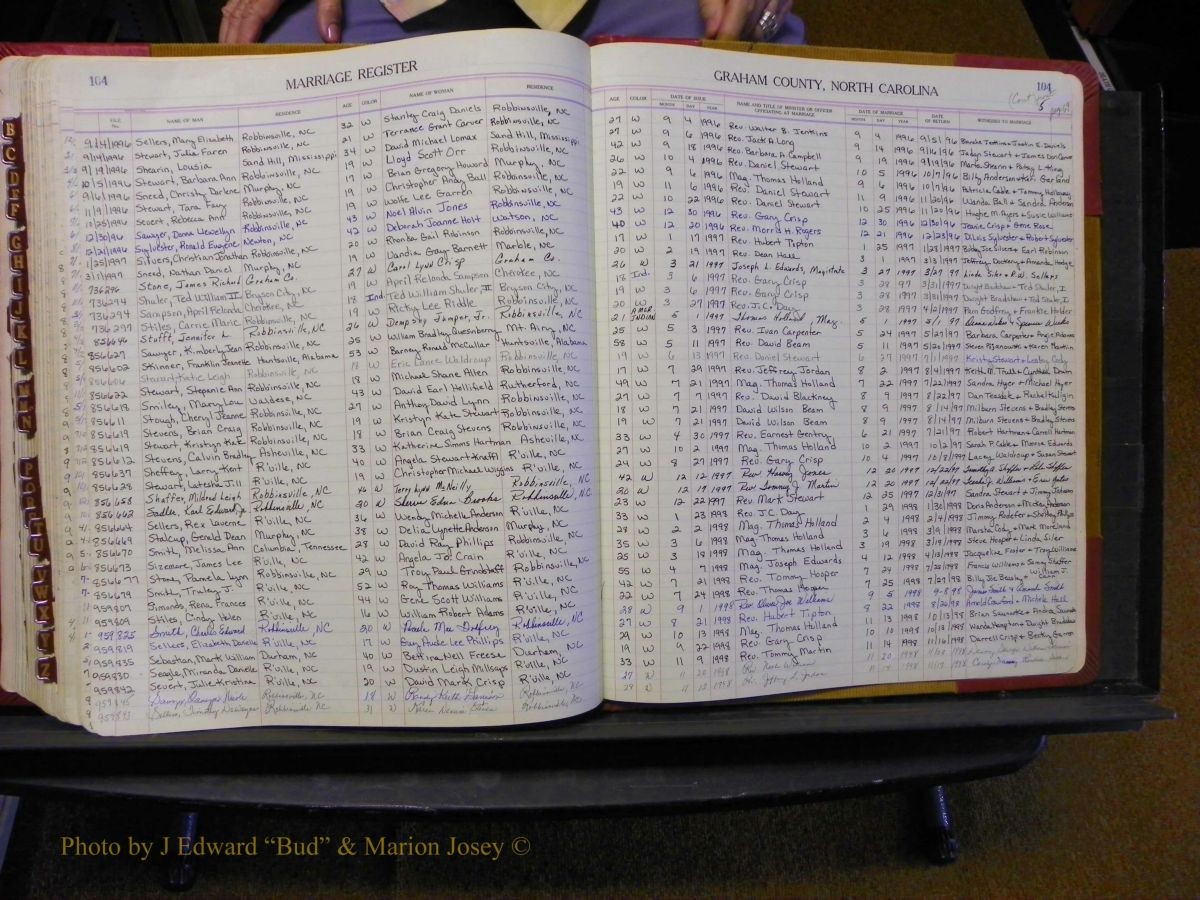 104
MARRIAGE REGISTER
FILE No. NAME OF MAN RESIDENCE AGE COLOR NAME OF WOMAN RESIDENCE
9/4/1996 Sellers, Mary Elizabeth Robbinsville, NC 32 W Stanley Craig Daniels Robbinsville, NC
9/4/1996 Stewart, Julia Faren Robbinsville, NC 21 W Terrance Grant Carver Robbinsville, NC
9/19/1996 Shearin, Lousia Sand Hill, Mississippi 34 W David Michael Lomax Sand Hill, Mississippi
10/5/1996 Stewart, Barbara Ann Robbinsville, NC 17 W Lloyd Scott Orr Robbinsville, NC
9/6/1996 Sneed, Christy Darlene Murphy, NC W Brian Gregory Howard Murphy, NC
11/9/1996 Stewart, Tara Faye Robbinsville, NC 19 W Christopher Andy Ball Robbinsville, NC
10/25/1996 Stuert, Rebecca Ann Robbinsville, NC W Wolfe Lee Garren Robbinsville, NC
12/30/96 Sawyer, Dona Llewellyn Robbinsville, NC 43 W Noel Alvin Jones Robbinsville, NC
12/21/1996 Sylvester, Ronald Eugene Newton, NC 42 W Deborah Joanne Holt Watson, NC
1/25/1997 Silvers, Christian Jonathan Robbinsville, NC 20 W Rhonda Gail Robinson Robbinsville, NC
3/1/1997 Sneed, Nathan Daniel Murphy, NC 19 W Vandia Gray Barnett Marble, NC
736296 Stone, James Richard Graham Co. 27 W Carol Lynn Crisp Graham Co.
736294 Shuler, Ted William II Bryson City, NC 19 W April Relonda Sampson Cherokee, NC
736294 Sampson, April Relonda Cherokee, NC 18 Ind. Ted William Shuler II Bryson City, NC
736297 Stiles, Carrie Marie Robbinsville, NC 18 W Ricky Lee Riddle Robbinsville, NC
856646 Stafft, Jennifer L Robbinsville, NC 26 W Dempsey Jumper, Jr. Robbinsville, NC
856627 Sawyer, Kimberly Jean Robbinsville, NC 25 W William Bradley Quesnberry Mt. Airy, NC
856602 Skinner, Franklin Jeanette Huntsville, Alabama 53 W Barney Ronald McCullar Huntsville, Alabama
856606 Stewart, Katie Leigh Robbinsville, NC 18 W Eric Lance Waldroup Robbinsville, NC
856622 Stewart, Stepanie Ann Robbinsville, NC 18 W Michael Shane Allen Robbinsville, NC
856618 Smiley, Mary Lou Valdese, NC 43 W David Earl Hollifield Rutherford, NC
856611 Stough, Cheryl Jeanne Robbinsville, NC 27 W Anthoy David Lynn Robbinsville, NC
856619 Stevens, Brian Craig Robbinsville, NC 19 W Kristyn Kate Stewart Robbinsville, NC
856619 Stewart, Kristyn Kate Robbinsville, NC 18 W Brian Craig Stevens Robbinsville, NC
856612 Stevens, Calvin Bradley Asheville, NC 33 W Katherine Simms Hartman Asheville, NC
856637 Sheffey, Larry Kent R'ville, NC 40 W Angela Stewart Knafl R'ville, NC
856628 Stewart, Latesha Jill R'ville, NC 19 W Christopher Michael Wiggins R'ville, NC
856658 Shaffer, Mildred Leigh Robbinsville, NC 42 W Terry Lynn McNeilly Robbinsville, NC
856662 Sadler, Karl Edward, Jr. Robbinsville, NC 20 W Sherrie Edna Brooke Robbinsville, NC
856664 Sellers, Rex Laverne R'ville, NC 36 W Wendy Michelle Anderson R'ville, NC
856669 Stalcup, Gerald Dean Murphy, NC 38 W Delia Lynette Anderson Murphy, NC
856670 Smith, Melissa Ann Columbia, Tennessee 28 W David Ray Phillips Robbinsville, NC
856673 Sizemore, James Lee R'ville, NC 42 W Angela Joi Crain R'ville, NC
856677 Stone, Pamela Lynn Robbinsville, NC 29 W Troy Paul Grindstaff Robbinsville, NC
856679 Smith, Truley J. R'ville, NC 52 W Roy Thomas Williams R'ville, NC
959807 Simonds, Rena Frances R'ville, NC 44 W Gene Scott Williams R'ville, NC
959809 Stiles, Cindy Helen R'ville, NC 16 W William Robert Adams R'ville, NC
959825 Smith, Charles Edward Robbinsville, NC 20 W Paula Mae Godfrey Robbinsville, NC
959819 Sellers, Elizabeth Danielle R'ville, NC 17 W Guy Aude Lee Phillips R'ville, NC
959835 Sebastian, Mark William Durham, NC 40 W Bettina Nell Freese Durham, NC
959830 Seagle, Miranda Danielle R'ville, NC 19 W Dustin Leigh Millsaps R'ville, NC
959842 Seivert, Julie Kristina R'ville, NC 20 W David Mark Crisp R'ville, NC
Robbinsville, NC 18 W Robbinsville, NC
Robbinsville NC 31 W
GRAHAM COUNTY, NORTH CAROLINA
104
AGE COLOR DATE OF ISSUE MONTH DAY YEAR NAME AND TITLE OF MINISTER OR OFFICER OFFICIATING AT MARRIAGE DATE OF MARRIAGE MONTH DAY YEAR DATE OF RETURN WITNESSES TO MARRIAGE
27 W 9 4 1996 Rev. Walter B. Jenkins 9 4 1996 9/5/96 Blanche Jenkins + Justin S. Daniels
27 W 9 6 1996 Rev. Jack A Long 9 14 1996 9/16/96 Judge Stewart + James Don Carver
42 W 9 18 1996 Rev. Barbara A. Campbell 9 19 1996 9/19/96 Marta Shearin + Patsy L. King
26 W 10 4 1996 Rev. Daniel Stewart 10 5 1996 10/7/96 Billy Andersen + Kari Garland
22 W 9 6 1996 Mag. Thomas Holland 9 6 1996 10/1/96 Patricia Cable + Tommy Holloway
19 W 11 6 1996 Rev. Daniel Stewart 11 9 1996 11/20/96 Wanda Ball + Sandra Anderson
22 W 10 22 1996 Rev. Daniel Stewart 10 25 1996 11/20/96 Hughe M. Ayers + Susie Williams
43 W 12 30 1996 Rev. Gary Crisp 12 30 1996 12/30/96 Jeanie Crisp + Gene Rose
40 W 12 20 1996 Rev. Morris H. Rogers 12 21 1996 12/23/96 DiLois Sylvester + Robert Sylvester
17 W 1 17 1997 Rev. Hubert Tipton 1 25 1997 1/28/1997 Bobby Joe Silvers + Earl Robinson
20 W 2 19 1997 Rev. Dean Hall 3 1 1997 3/3/1997 Jeffrey Dockery + Amanda Hodge
26 W 3 21 1997 Joseph L. Edwards, Magistrate 3 27 1997 3/27 97 Linda Siler + R.W. Sellers
18 Ind. 3 6 1997 Rev. Gary Crisp 3 28 97 3/31/1997 Dwight Bradshaw + Ted Shuler, I
19 W 3 6 1997 Rev. Gary Crisp 3 28 1997 3/31/1997 Dwight Bradshaw + Ted Shuler, I
20 W 3 27 1997 Rev. J.C. Day 3 28 1997 4/2/1997 Pam Godfrey + Frankie Holder
21 AMER. INDIAN 5 1 1997 Thomas Holland, Mag. 5 1 1997 5/1 97
25 W 5 3 1997 Rev. Ivan Carpenter 5 24 1997 5/27/97 Barbara Carpenter + Angie Adams
58 W 5 11 1997 Rev. David Beam 5 11 1997 5/20/1997 Steve Pojanowski + Karen Mankin
19 W 6 13 1997 Rev. Daniel Stewart 6 27 1997 7/1/1997 Kristy Stewart + Lesley Cody
17 W 7 29 1997 Rev. Jeffrey, Jordan 8 2 1997 8/4/1997 Keith M. Trull + Cynthea Dawn
49 W 7 21 1997 Mag. Thomas Holland 7 22 1997 7/22/1997 Sandra Hyer + Michael Hyer
27 W 7 7 1997 Rev. David Blackney 8 9 1997 8/22/97 Dan Teasdale + Rachel Kulgin
18 W 7 21 1997 David Wilson Beam 8 9 1997 8/14/1997 Milburn Stevens + Bradley Stevens
19 W 7 21 1997 David Wilson Beam 8 9 1997 8/14/1997 Milburn Stevens + Bradley Stevens
33 W 4 30 1997 Rev. Earnest Gentry 6 21 1997 7/21/97 Robert Hartman + Carroll Hartman
27 W 10 2 1997 Mag. Thomas Holland 10 2 1997 10/2/97 Sarah P. Cable + Monroe Edwards
24 W 8 27 1997 Rev. Gary Crisp 10 4 1997 10/8/97 Lacey Waldroup + Susan Stewart
42 W 12 12 1997 Rev Harvey Jones 12 20 1997 12/22/97
20 W 12 19 1997 Rev Tommy J. Martin 12 20 1997 12/22/97
23 W 12 22 1997 Rev Mark Stewart 12 25 1997 12/31/97 Sandra Stewart + Jimmy Johnson
33 W 1 23 1998 Rev. J.C. Day 1 29 1998 1/30/1998 Doris Anderson + Mickey Anderson
28 W 2 2 1998 Mag. Thomas Holland 2 4 1998 2/4/1998 Jimmy Radefer + Shelley Phillips
35 W 3 6 1998 Mag. Thomas Holland 3 6 1998 3/9/1998 Marsha Cody + Mark Moreland
25 W 3 18 1998 Mag. Thomas Holland 3 19 1998 3/19/1998 Steve Hooper + Linda Siler
55 W 4 7 1998 Mag. Joseph Edwards 4 12 1998 4/13/1998 Jacqueline Foster + Troy Williams
42 W 7 21 1998 Rev. Tommy Hooper 7 24 1998 7/27/98 Francis Williams + Sandy Staffer
22 W 7 24 1998 Rev. Thomas Hooper 7 25 1998 7/27/98 Billy Joe Beasley + William J. Cann
28 W 9 1 1998 Rev Oliver Joe Williams 9 5 1998 9-8-98 Jennie Smith + Amanda Smith
27 W 8 21 1998 Rev. Hubert Tipton 8 22 1998 8/26/98 Arnold Crawford + Michele Hall
29 W 10 13 1998 Mag. Thomas Holland 10 13 1998 10/13/98 Brian Saunooke + Andrea Saunooke
19 W 9 22 1998 Rev. Gary Crisp 10 10 1998 10/13/1998 Wanda Hampton + Dwight Bradshaw
33 W 11 9 1998 Rev. Tommy Martin 11 14 1998 11/16/1998 Darrell Crisp + Becky Garren
27 W 11 20 1998 11 20 1998
29 W 11 12 1998
B
C
D
E
F
G
H
I
J
K
L
M
N
P
Q
R
S
T
U
V
W
X
Y
Z
Photo by J Edward “Bud” & Marion Josey ©